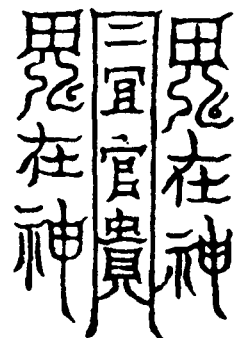 鬼在神
二冝官貴
鬼在神